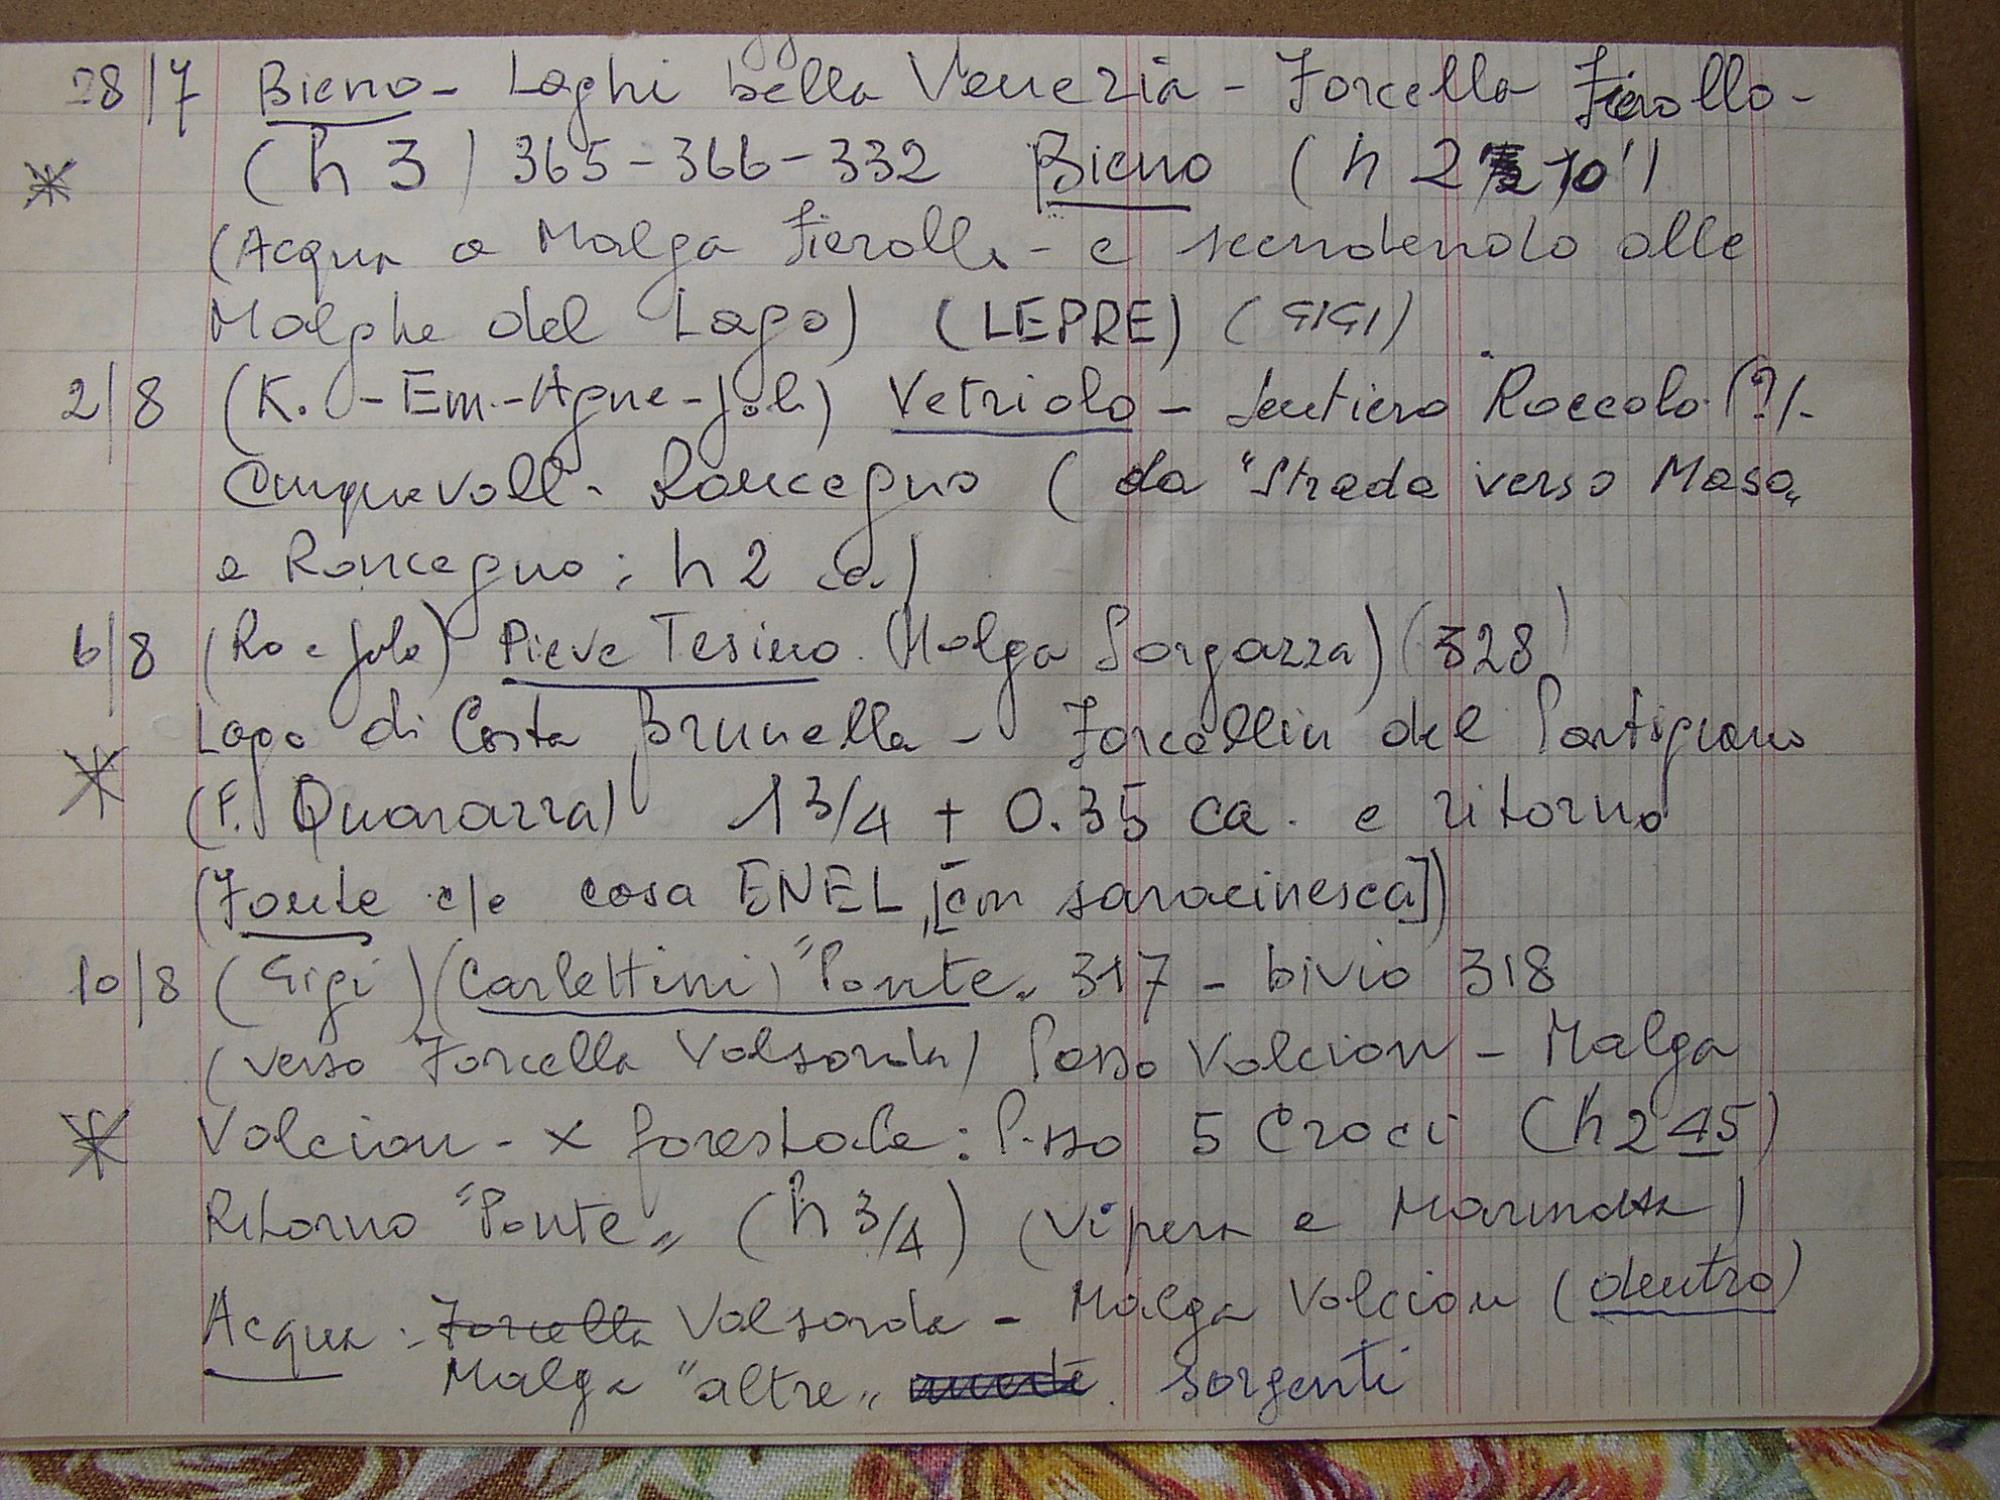 28/7 Bieno - Laghi bella Venezia - Forcella Fierollo -
(h 3) 365-366-332 Bieno (h 2 10')
(Acqua a Malga Fierollo - e scendendo alle
Malghe del Lago) (LEPRE) (GIGI)
2/8 (K. - Em.-Agne-Job) Vetriolo - Sentiero Roccolo (?)-
Cinquevalli - Roncegno (da "Strada verso Maso"
e Roncegno: h 2 ca.)
6/8 (Ro e Jole) Pieve Tesino (Malga Sorgazza) (328)
Lago di Costa Brunella - Forcellin del Partigiano
(F. Quarazza) 1 3/4 + 0.35 ca. e ritorno
(Fonte c/o casa ENEL, [con saracinesca])
10/8 (Gigi) (Carlettini) "Ponte" 317 - bivio 318
(verso Forcella Valsorda) Passo Valcion - Malga
Valcion - x forestale: P.sso 5 Croci (h 2 45)
Ritorno "Ponte" (h 3/4) (Vipera e Marmotta)
Acqua: Forcella Valsorda - Malga Valcion (dentro)
Malga "altre" sorgenti